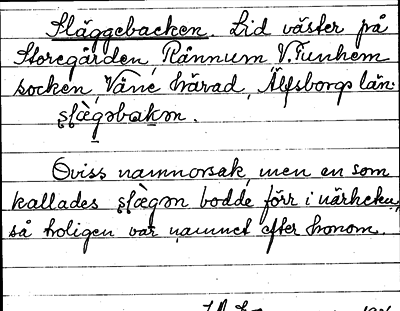 Släggebacken. Lid väster på
Storegården, Rånnum V. Tunhem
socken, Väne härad, Älfsborgs län.
Oviss namnorsak, men en som
kallades slǽgən bodde förr i närheten,
så troligen var namnet efter honom.